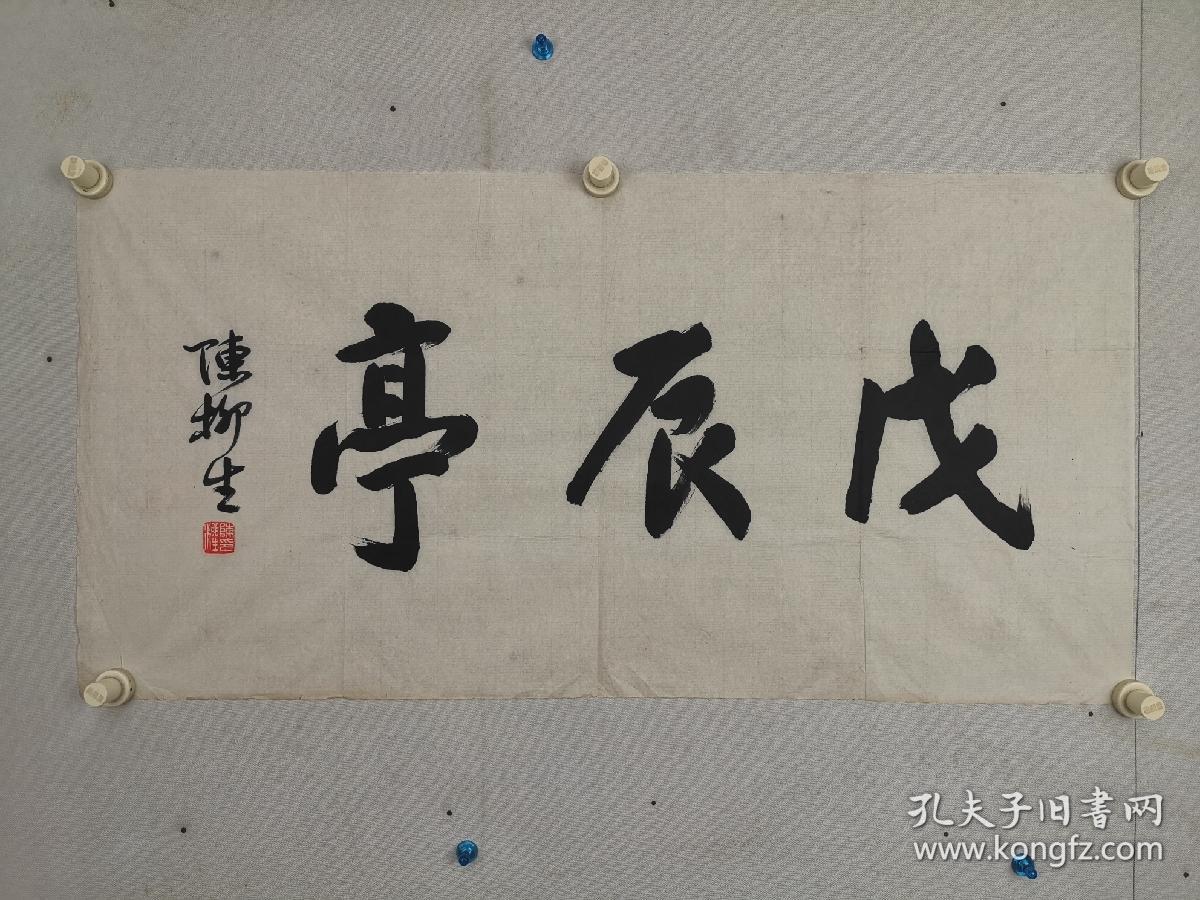 戊辰亭
陳柳生
孔夫子旧書网
www.kongfz.com